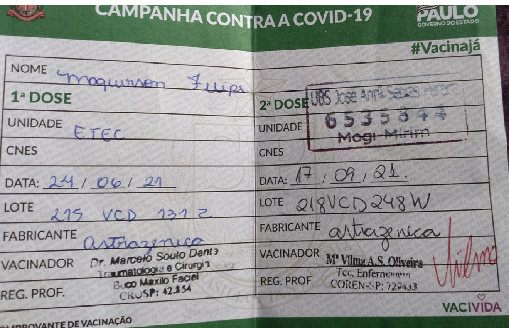 CAMPANHA CONTRA A COVID-19
PAULO
GOVERNO DO ESTADO
#Vacinajá
NOME Maquirson Filipi
1ª DOSE
UNIDADE ETEC
CNES
DATA: 24 / 06 / 21
LOTE 215 VCD 131 Z
FABRICANTE astrazenica
VACINADOR Dr. Marcelo Souto Dantas
Traumatologia e Cirurgia
Buco Maxilo Facial
REG. PROF. CROSP: 42.254
2ª DOSE UBS José
6535844
UNIDADE Mogi Mirim
CNES
DATA: 17 / 09 / 21
LOTE 218VCD248W
FABRICANTE astrazenica
VACINADOR Mª Vilma A.S. Oliveira
Tec. Enfermagem
REG. PROF. COREN-SP: 729433
Vilma
VACIVIDA
PROVANTE DE VACINAÇÃO